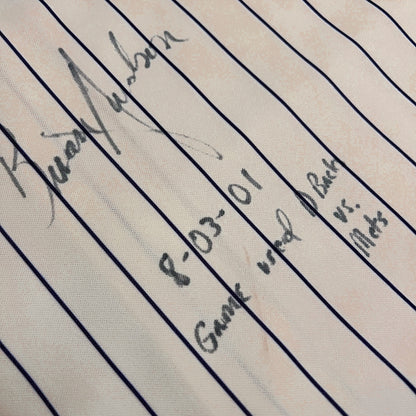 Brian Anderson
8-03-01
Game used D Back
vs.
Mets